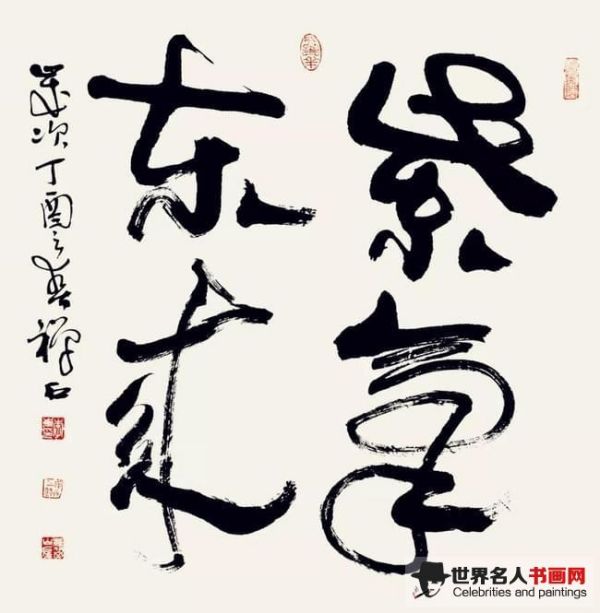 紫氣
东来
岁次丁酉之春禪石
世界名人书画网
Celebrities and paintings